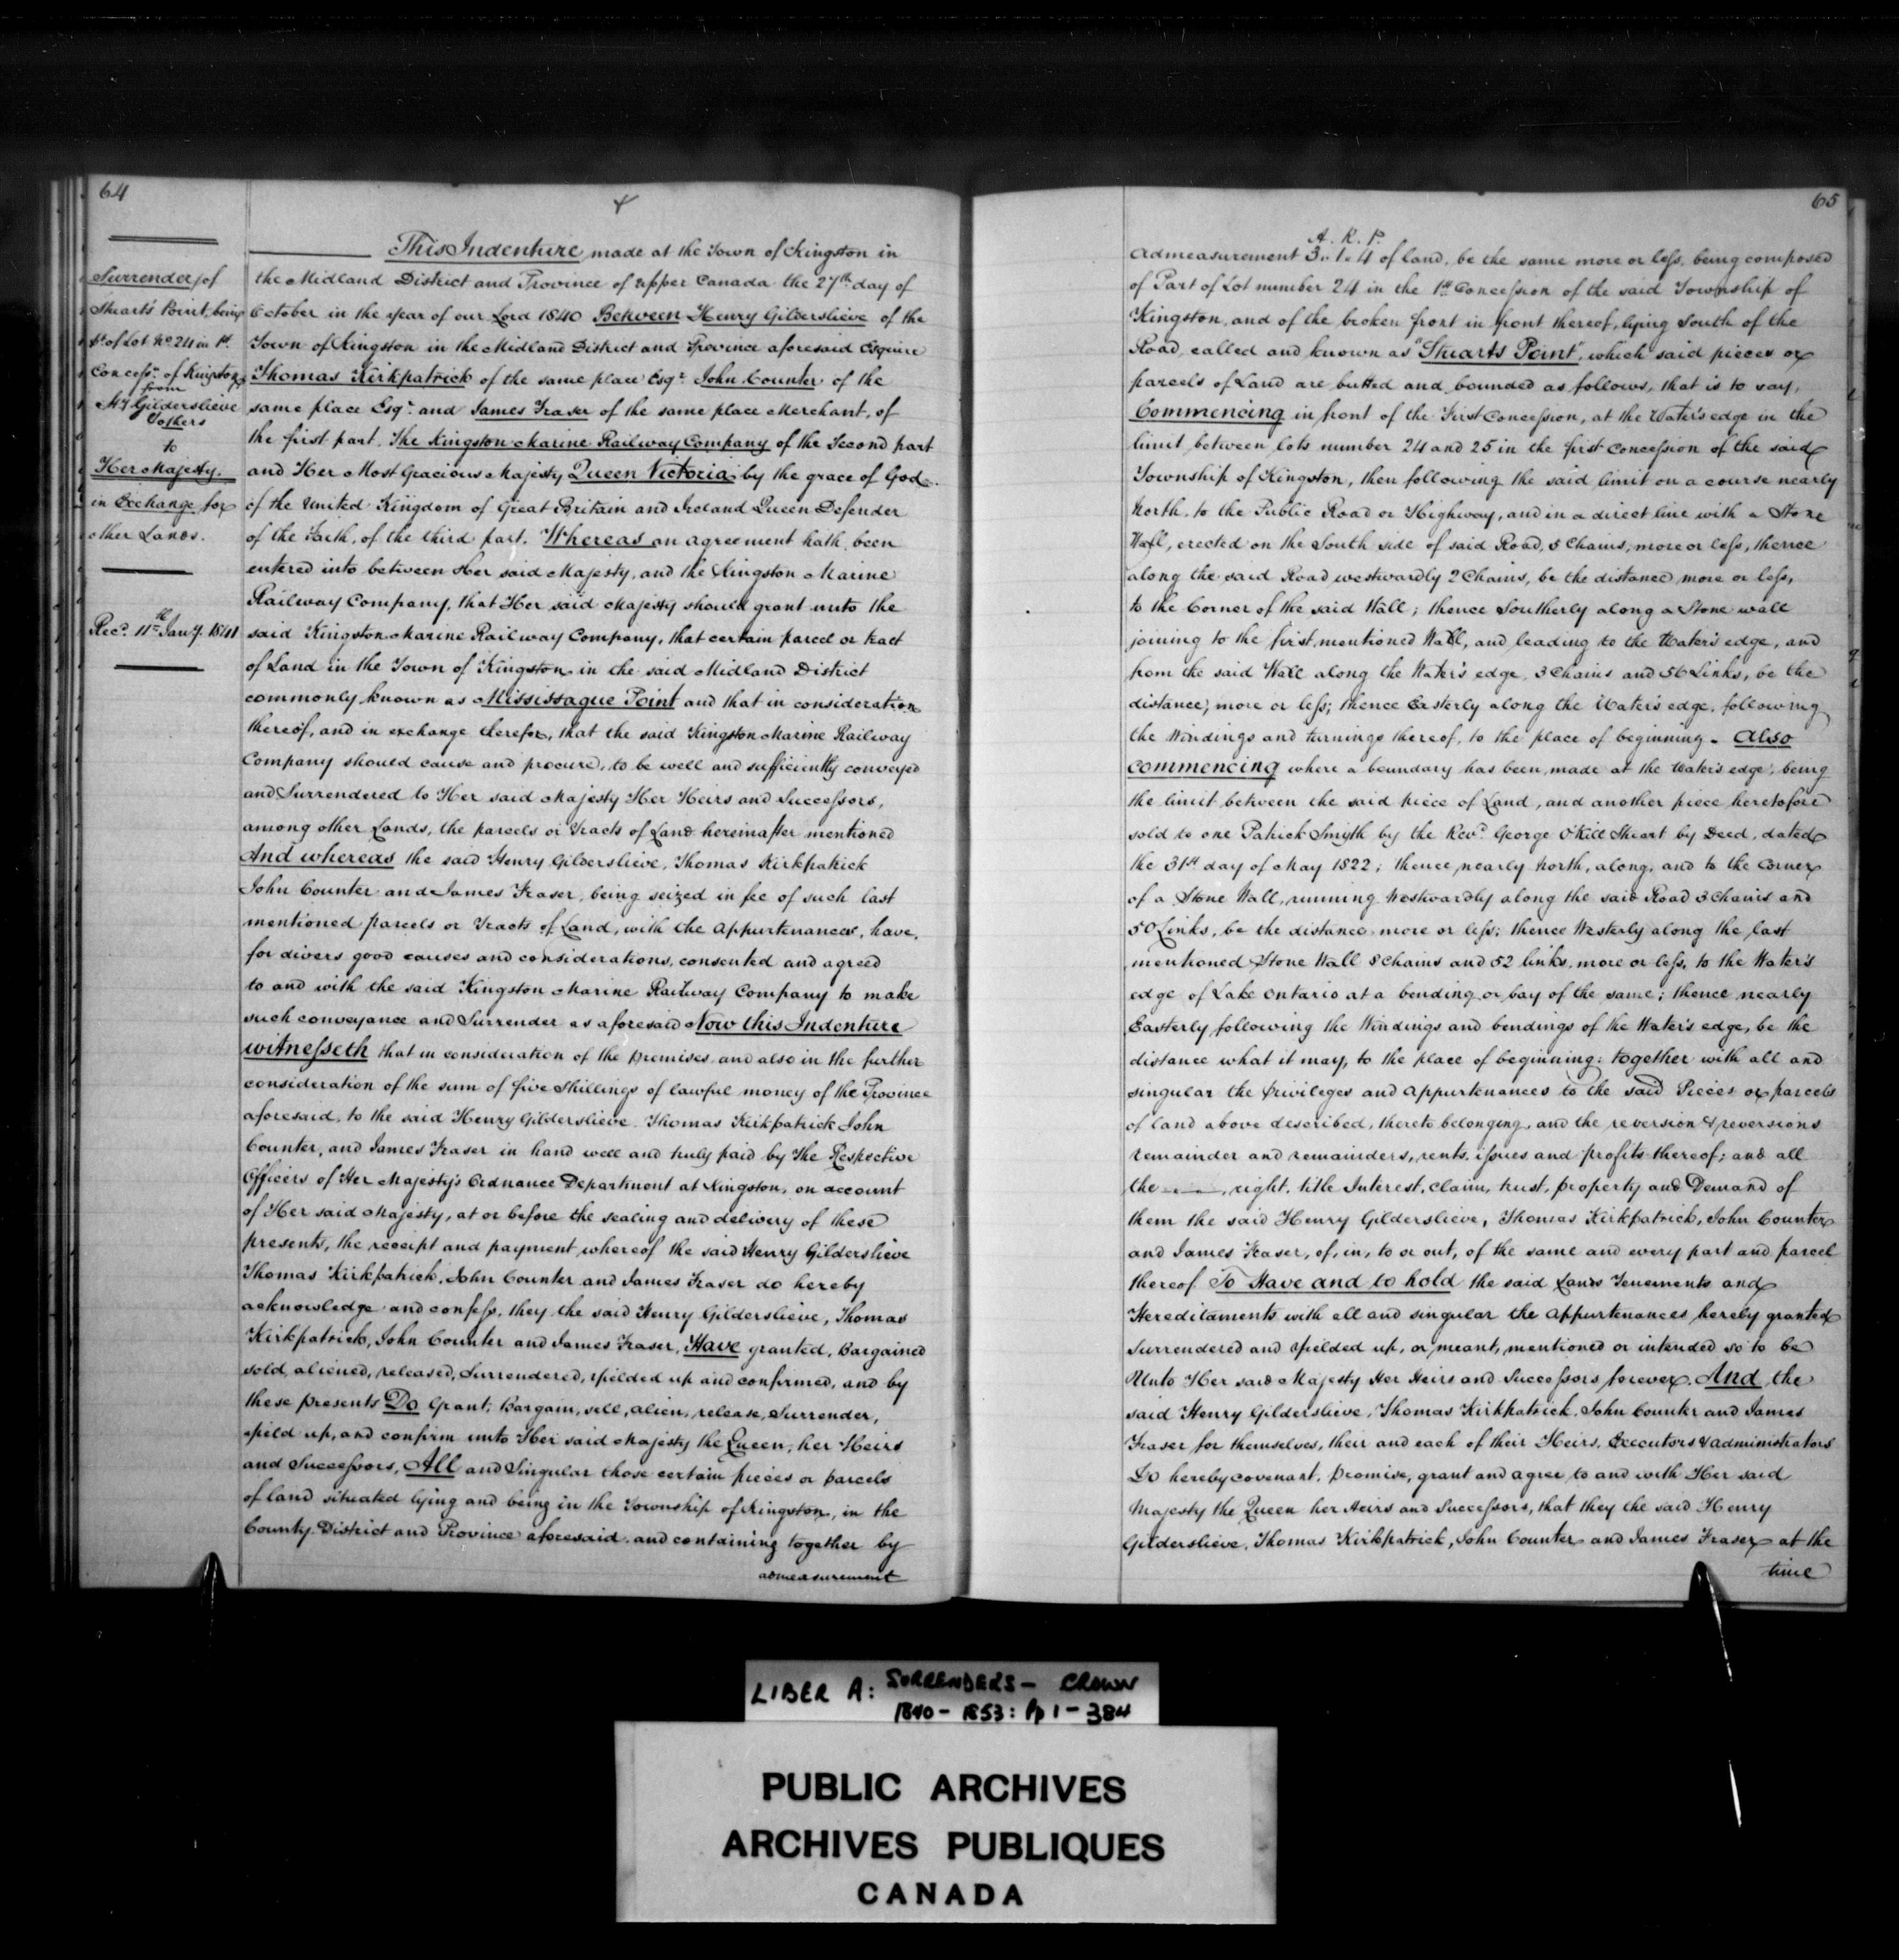 64
Surrender of
Stuart's Point, being
Pt. of Lot No. 24 in 1st.
Concessn. of Kingston
from
Hy Gilderslieve
& others
to
Her Majesty.
in Exchange for
other Lands.
Recd. 11th Jany. 1841
This Indenture made at the Town of Kingston in
the Midland District and Province of Upper Canada the 27th day of
October in the year of our Lord 1840 Between Henry Gilderslieve of the
Town of Kingston in the Midland District and Province aforesaid Esquire
Thomas Kirkpatrick of the same place Esqr. John Counter of the
same place Esqr. and James Fraser of the same place Merchant, of
the first part. The Kingston Marine Railway Company of the Second part
and Her Most Gracious Majesty Queen Victoria by the grace of God
of the United Kingdom of Great Britain and Ireland Queen Defender
of the Faith, of the third part. Whereas an agreement hath been
entered into between Her said Majesty, and the Kingston Marine
Railway Company, that Her said Majesty should grant unto the
said Kingston Marine Railway Company, that certain parcel or tract
of Land in the Town of Kingston in the said Midland District
commonly known as Mississaque Point and that in consideration
thereof, and in exchange therefor, that the said Kingston Marine Railway
Company should cause and procure, to be well and sufficiently conveyed
and Surrendered to Her said Majesty Her Heirs and Successors,
among other Lands, the parcels or Tracts of Land hereinafter mentioned
And whereas the said Henry Gilderslieve, Thomas Kirkpatrick
John Counter and James Fraser, being seized in fee of such last
mentioned parcels or Tracts of Land, with the Appurtenances, have,
for divers good causes and considerations, consented and agreed
to and with the said Kingston Marine Railway Company to make
such conveyance and Surrender as aforesaid Now this Indenture
witnesseth that in consideration of the premises and also in the further
consideration of the sum of five Shillings of lawful money of the Province
aforesaid, to the said Henry Gilderslieve. Thomas Kirkpatrick John
Counter, and James Fraser in hand well and truly paid by the Respective
Officers of Her Majesty's Ordnance Department at Kingston, on account
of Her said Majesty, at or before the sealing and delivery of these
presents, the receipt and payment whereof the said Henry Gilderslieve
Thomas Kirkpatrick, John Counter and James Fraser do hereby
acknowledge and confess, they the said Henry Gilderslieve, Thomas
Kirkpatrick, John Counter and James Fraser, Have granted, Bargained
sold, aliened, released, Surrendered, yielded up and confirmed, and by
these presents Do Grant, Bargain, sell, alien, release, Surrender,
yield up, and confirm unto Her said Majesty the Queen, her Heirs
and Successors, All and Singular those certain pieces or parcels
of land situated lying and being in the Township of Kingston, in the
County District and Province aforesaid, and containing together by
admeasurement
65
A. R. P.
Admeasurement 3,, 1,, 4 of land, be the same more or less, being composed
of Part of Lot number 24 in the 1st Concession of the said Township of
Kingston, and of the broken front in front thereof, lying South of the
Road, called and known as "Stuarts Point", which said pieces or
parcels of Land are butted and bounded as follows, that is to say,
Commencing in front of the First Concession, at the Water's edge in the
limit between lots number 24 and 25 in the first Concession of the said
Township of Kingston, then following the said limit on a course nearly
North, to the Public Road or Highway, and in a direct line with a Stone
Wall, erected on the South side of said Road, 5 Chains, more or less, thence
along the said Road westwardly 2 Chains, be the distance more or less,
to the Corner of the said Wall; thence Southerly along a Stone wall
joining to the first mentioned Wall, and leading to the Water's edge, and
from the said Wall along the Water's edge, 3 Chains and 56 Links, be the
distance, more or less; thence Easterly along the Water's edge, following
the Windings and turnings thereof, to the place of beginning. Also
commencing where a boundary has been made at the Water's edge, being
the limit between the said piece of Land, and another piece heretofore
sold to one Patrick Smyth by the Revd. George O'Kill Stuart by Deed, dated
the 31st day of May 1822; thence nearly North, along, and to the Corner
of a Stone Wall, running Westwardly along the said Road 3 Chains and
50 Links, be the distance more or less; thence Westerly along the last
mentioned Stone Wall 8 Chains and 52 links, more or less, to the Water's
edge of Lake Ontario at a bending or bay of the same; thence nearly
Easterly following the Windings and bendings of the Water's edge, be the
distance what it may, to the place of beginning: together with all and
singular the Privileges and Appurtenances to the said Pieces or parcels
of land above described, thereto belonging, and the reversion & reversions
remainder and remainders, rents, issues and profits thereof; and all
the ——, right, title Interest, claim, trust, property and Demand of
them the said Henry Gilderslieve, Thomas Kirkpatrick, John Counter
and James Fraser, of, in, to or out, of the same and every part and parcel
thereof To Have and to hold the said Lands Tenements and
Hereditaments with all and singular the appurtenances hereby granted
Surrendered and yielded up, or meant, mentioned or intended so to be
Unto Her said Majesty Her Heirs and Successors forever. And the
said Henry Gilderslieve, Thomas Kirkpatrick, John Counter and James
Fraser for themselves, their and each of their Heirs, Executors & administrators
Do hereby covenant, promise, grant and agree, to and with Her said
Majesty the Queen her Heirs and Successors, that they the said Henry
Gilderslieve, Thomas Kirkpatrick, John Counter and James Fraser at the
time
LIBER A: SURRENDERS - CROWN
1840 - 1853: Pp 1 - 384
PUBLIC ARCHIVES
ARCHIVES PUBLIQUES
CANADA